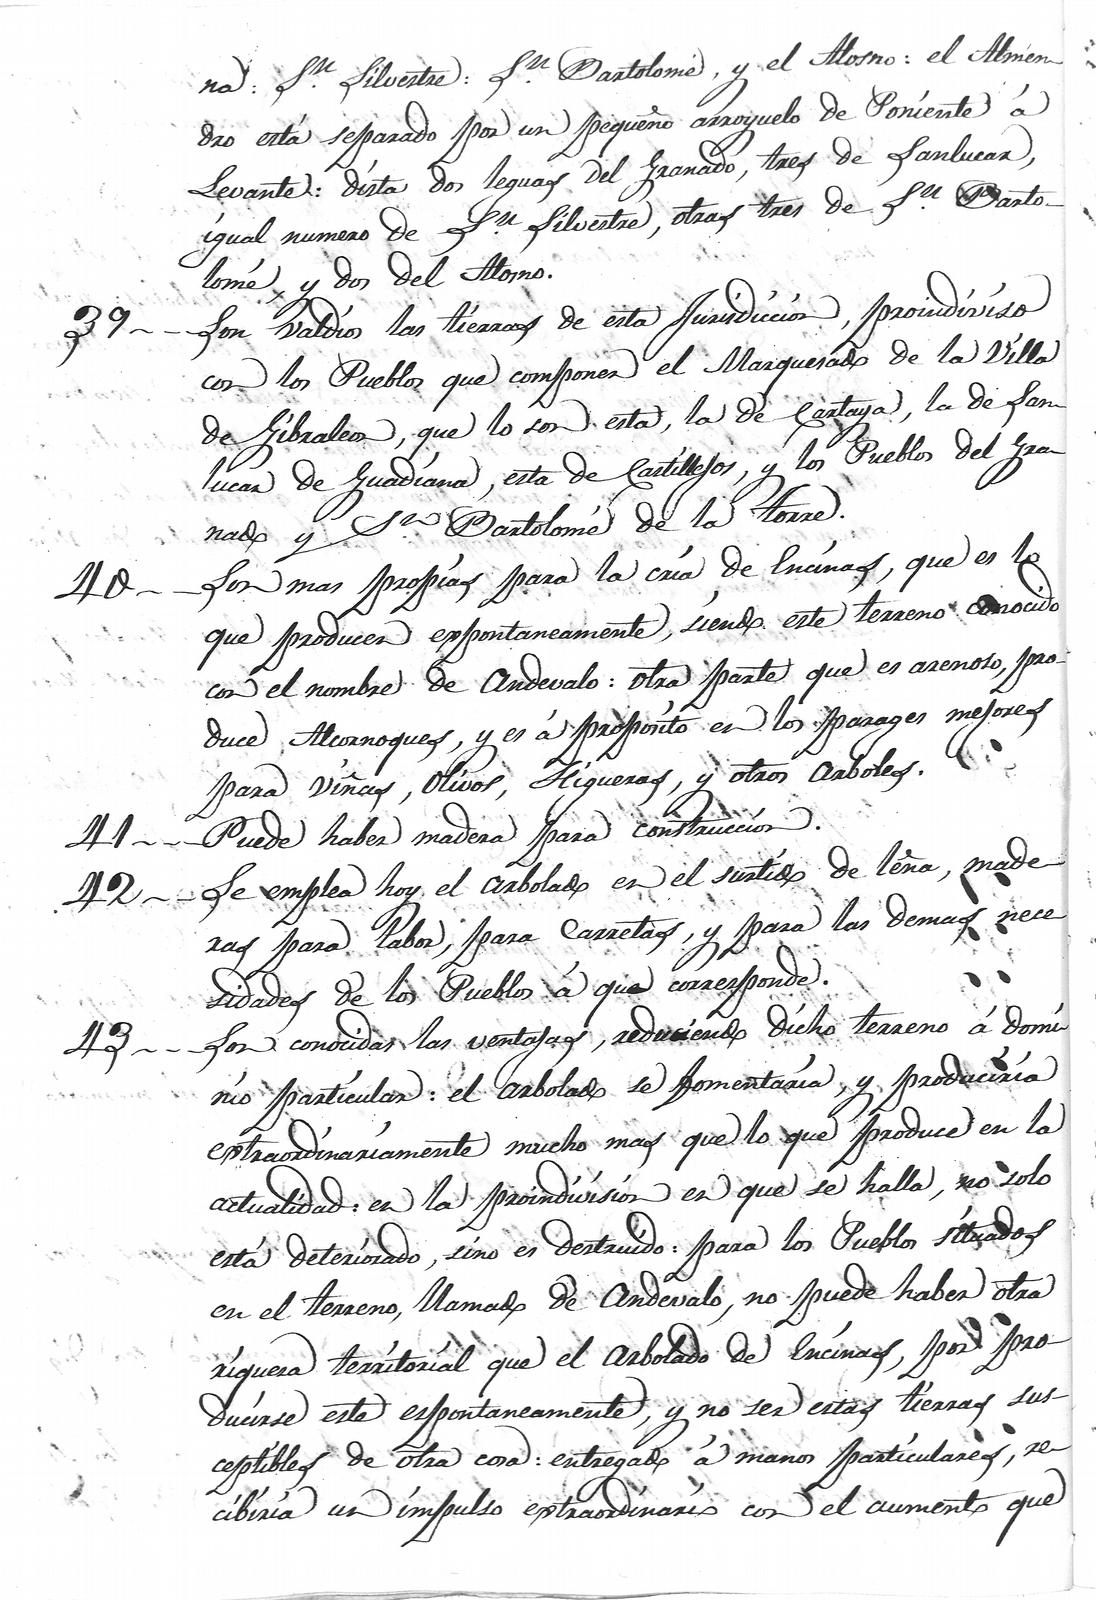 na: Sn. Silvestre: Sn. Bartolomé, y el Alosno: el Almen
dro está separado por un pequeño arroyuelo de Poniente á
Levante: dista dos leguas del Granado, tres de Sanlucar,
igual numero de Sn. Silvestre, otras tres de Sn. Barto-
lomé, y dos del Alosno.
39 -- Son Valdíos las tierras de esta Jurisdiccion, proindiviso
con los Pueblos que componen el Marquesado de la Villa
de Gibraleon, que lo son esta, la de Cartaya, la de San
lucar de Guadiana, esta de Castillejos, y los Pueblos del Gra-
nado y Sn. Bartolomé de la torre.
40 -- Son mas propias para la cría de Encinas, que es lo
que producen espontaneamente, siendo este terreno conocido
con el nombre de Andevalo: otra parte que es arenoso, pro-
duce Alcornoques, y es á proposito en los parages mejores
para viñas, Olivos, Higueras, y otros arboles.
41 -- Puede haber madera para construccion.
42 -- Se emplea hoy el arbolado en el surtido de leña, made-
ras para labor, para Carretas, y para las demas nece
sidades de los Pueblos á que corresponde.
43 -- Son conocidas las ventajas, reduciendo dicho terreno á domi
nio particular: el arbolado se fomentaria, y produciria
extraordinariamente mucho mas que lo que produce en la
actualidad: en la proindivision en que se halla, no solo
está deteriorado, sino es destruido: para los Pueblos situados
en el terreno, llamado de Andevalo, no puede haber otra
riquera territorial que el arbolado de Encinas, por pro-
ducirse este espontaneamente, y no ser estas tierras sus-
ceptibles de otra cosa: entregado á manos particulares, re-
cibiria un impulso extraordinario con el aumento que